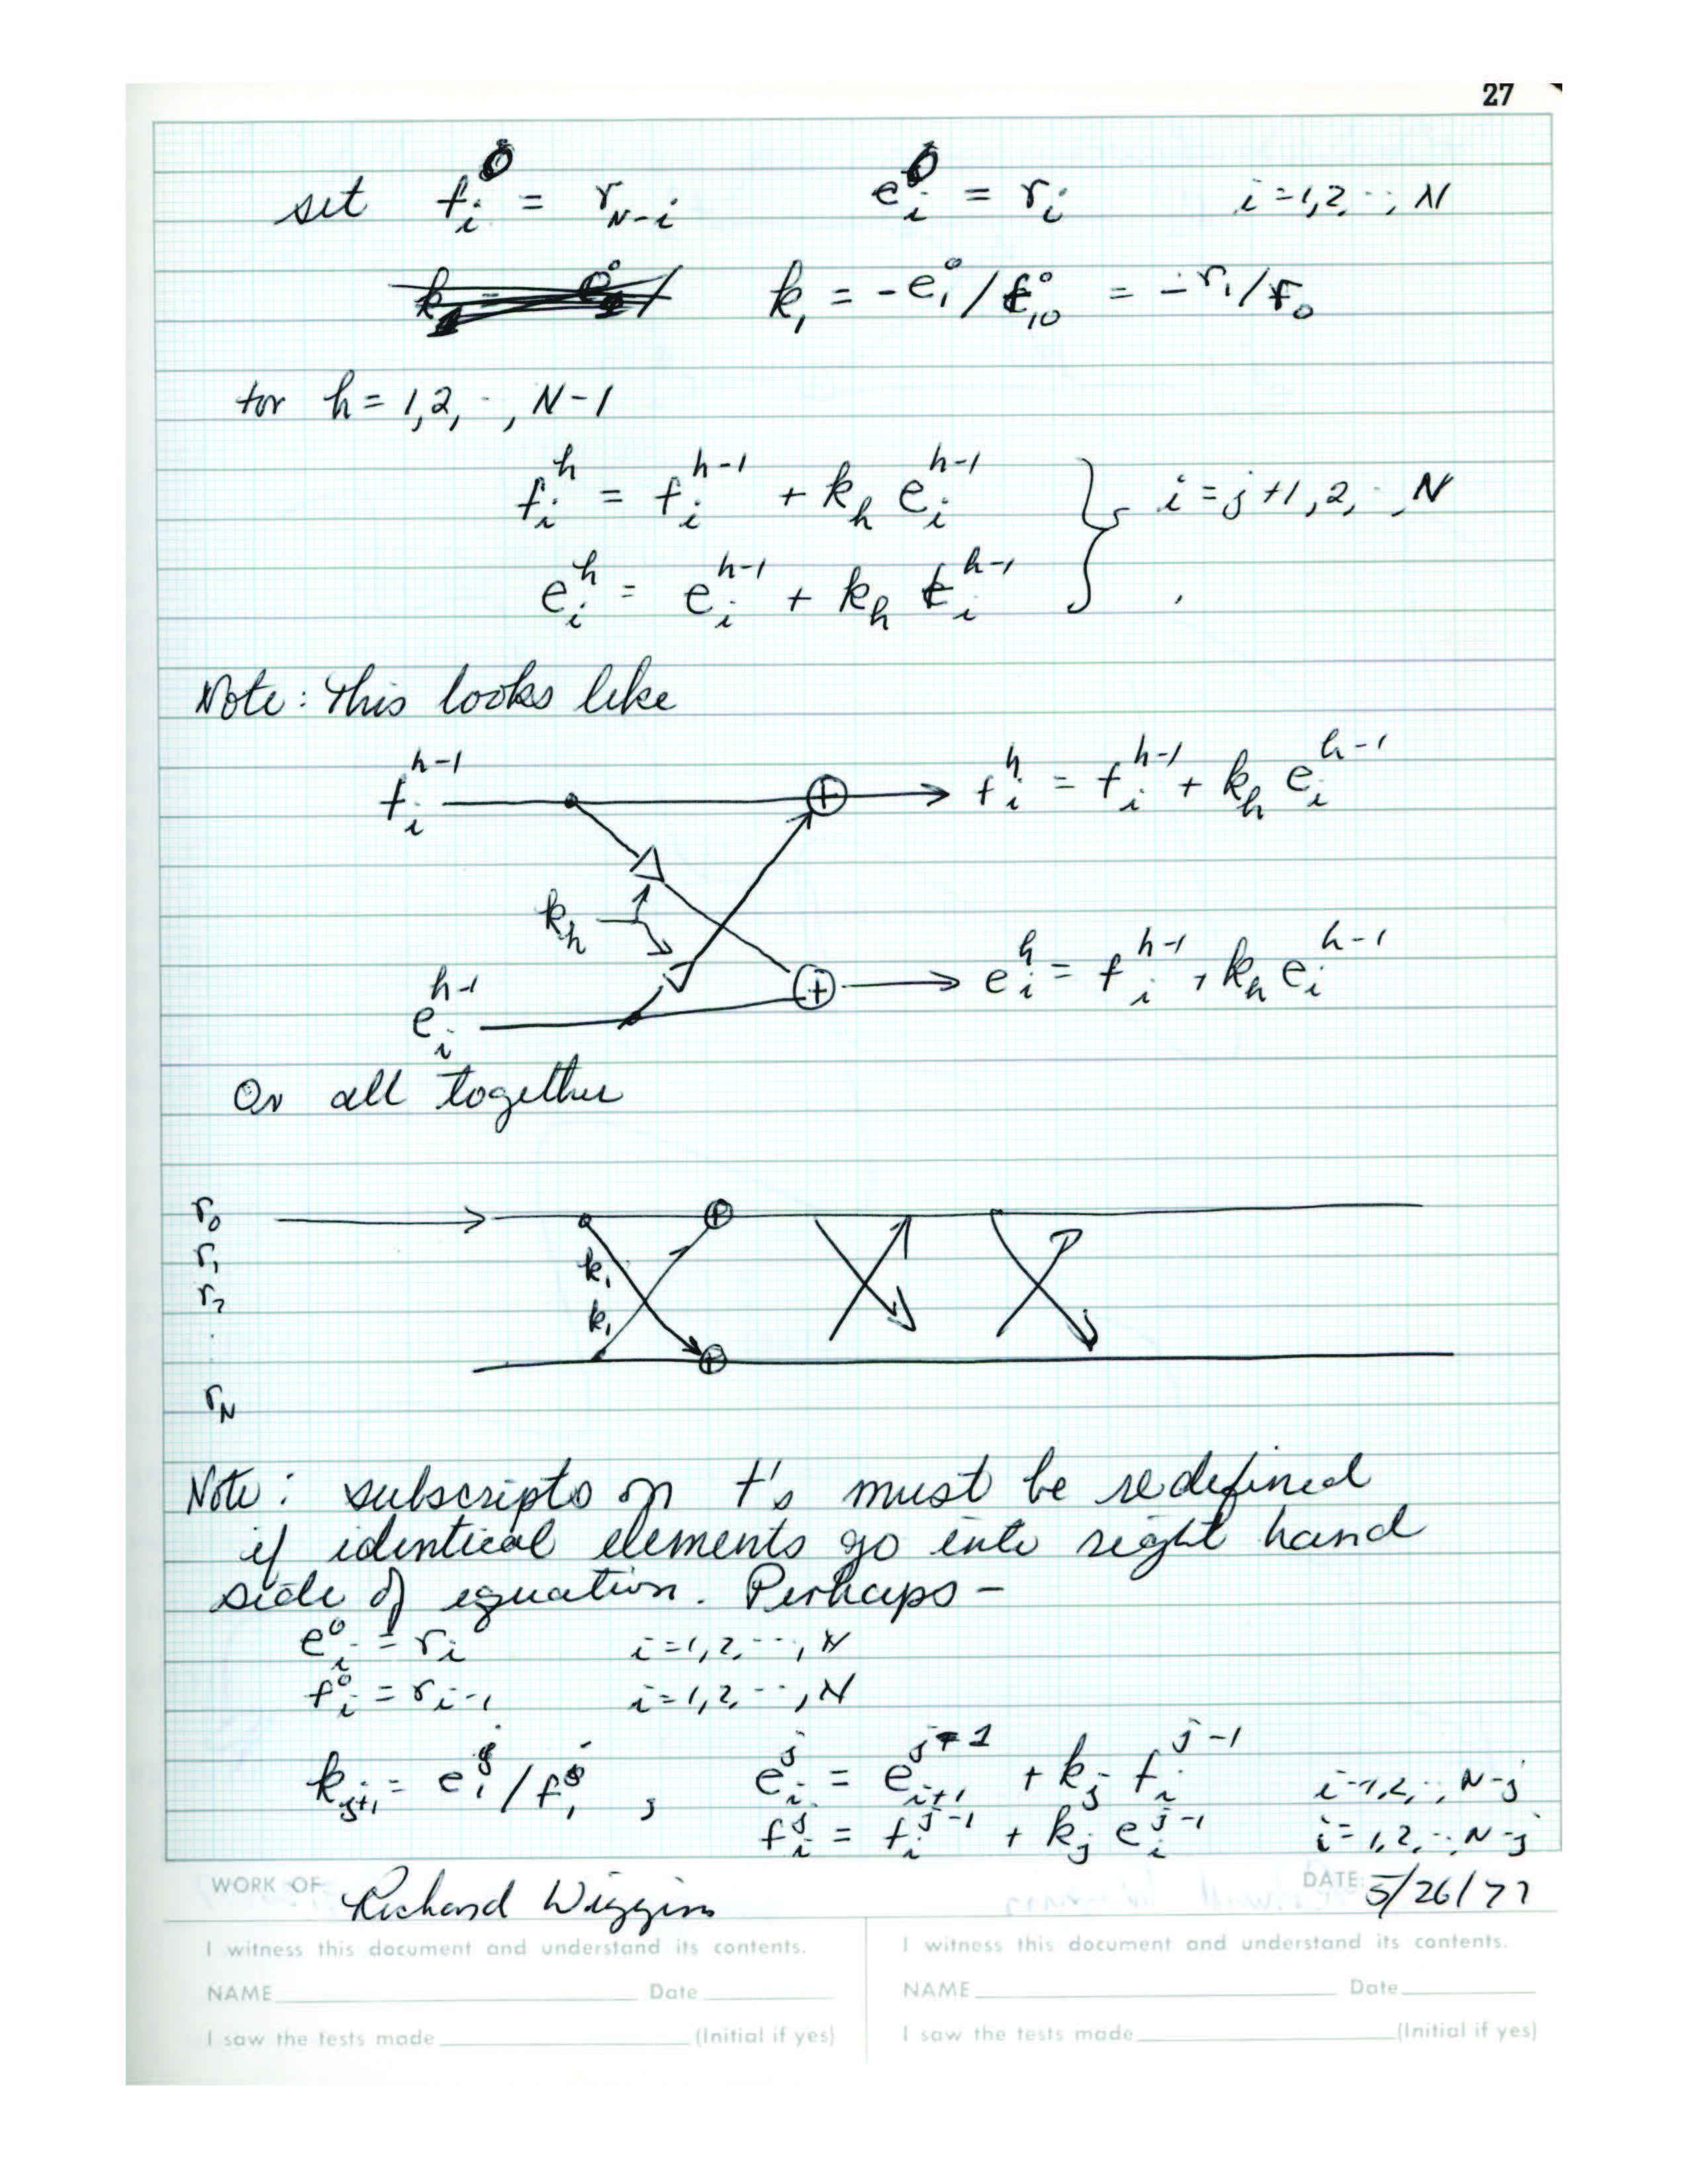 27
set f_i^0 = r_{N-i}    e_i^0 = r_i    i = 1,2, ··, N
k_1 = -e_1^0 / f_{10}^0 = -r_1/r_0
for h = 1,2, ··, N-1
f_i^h = f_i^{h-1} + k_h e_i^{h-1} } i = j+1, 2, ··, N
e_i^h = e_i^{h-1} + k_h f_i^{h-1}
Note: This looks like
f_i^{h-1}    f_i^h = f_i^{h-1} + k_h e_i^{h-1}
k_h
e_i^{h-1}    e_i^h = f_i^{h-1} + k_h e_i^{h-1}
Or all together
r_0
r_1    k_1
r_2    k_1
r_N
Note: subscripts on f's must be redefined
if identical elements go into right hand
side of equation. Perhaps -
e_i^0 = r_i    i = 1,2, ··, N
f_i^0 = r_{i-1}    i = 1,2, ··, N
k_{j+1} = e_1^j / f_1^j ,    e_i^j = e_{i+1}^{j-1} + k_j f_i^{j-1}    i = 1,2, ··, N-j
f_i^j = f_i^{j-1} + k_j e_i^{j-1}    i = 1,2, ··, N-j
WORK OF Richard Wiggins    DATE: 5/26/77
I witness this document and understand its contents.    I witness this document and understand its contents.
NAME    Date    NAME    Date
I saw the tests made (Initial if yes)    I saw the tests made (Initial if yes)